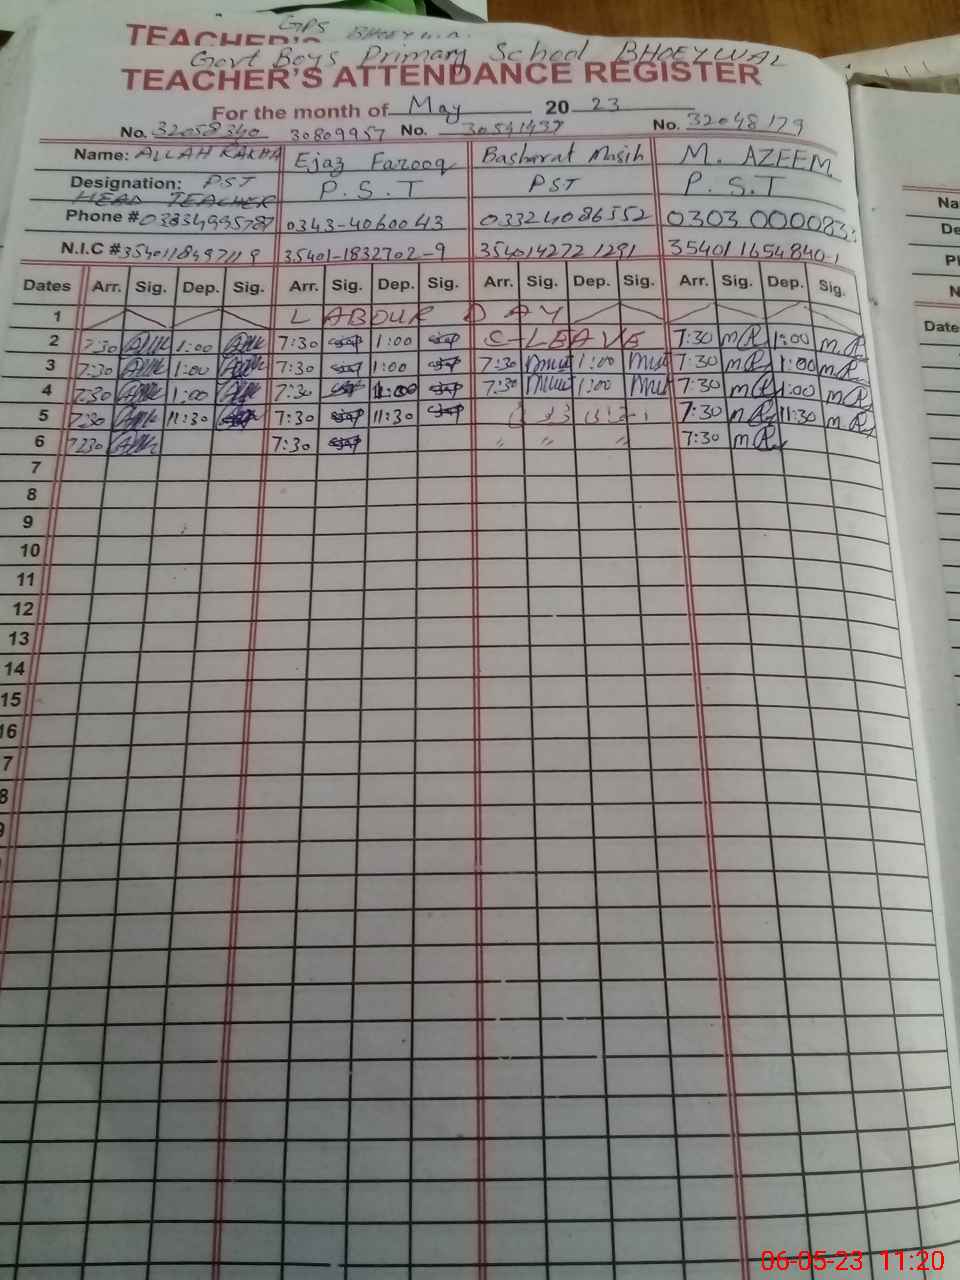 GPS
TEACHER'S
Govt Boys Primary School BHOEYWAL
TEACHER'S ATTENDANCE REGISTER
For the month of May 20 23
No. 32058340 30809957 No. 30541437 No. 32048179
Name: ALLAH RAKHA Ejaz Farooq Basharat Masih M. AZEEM
Designation: PST P.S.T PST P.S.T
HEAD TEACHER
Phone # 0343-4060043 03324086352 0303 000083
N.I.C # 35401-1832702-9 3540142721291 35401 1654840-1
Dates Arr. Sig. Dep. Sig. Arr. Sig. Dep. Sig. Arr. Sig. Dep. Sig. Arr. Sig. Dep. Sig.
1 LABOUR DAY
2 7:30 1:00 7:30 1:00 C-LEAVE 7:30 1:00
3 7:30 1:00 7:30 1:00 7:30 1:00 7:30 1:00
4 7:30 1:00 7:30 1:00 7:30 1:00 7:30 1:00
5 7:30 11:30 7:30 11:30 7:30 11:30
6 7:30 7:30 " " " 7:30
7
8
9
10
11
12
13
14
15
16
7
8
9
Na
De
Pl
N
Date
06-05-23 11:20